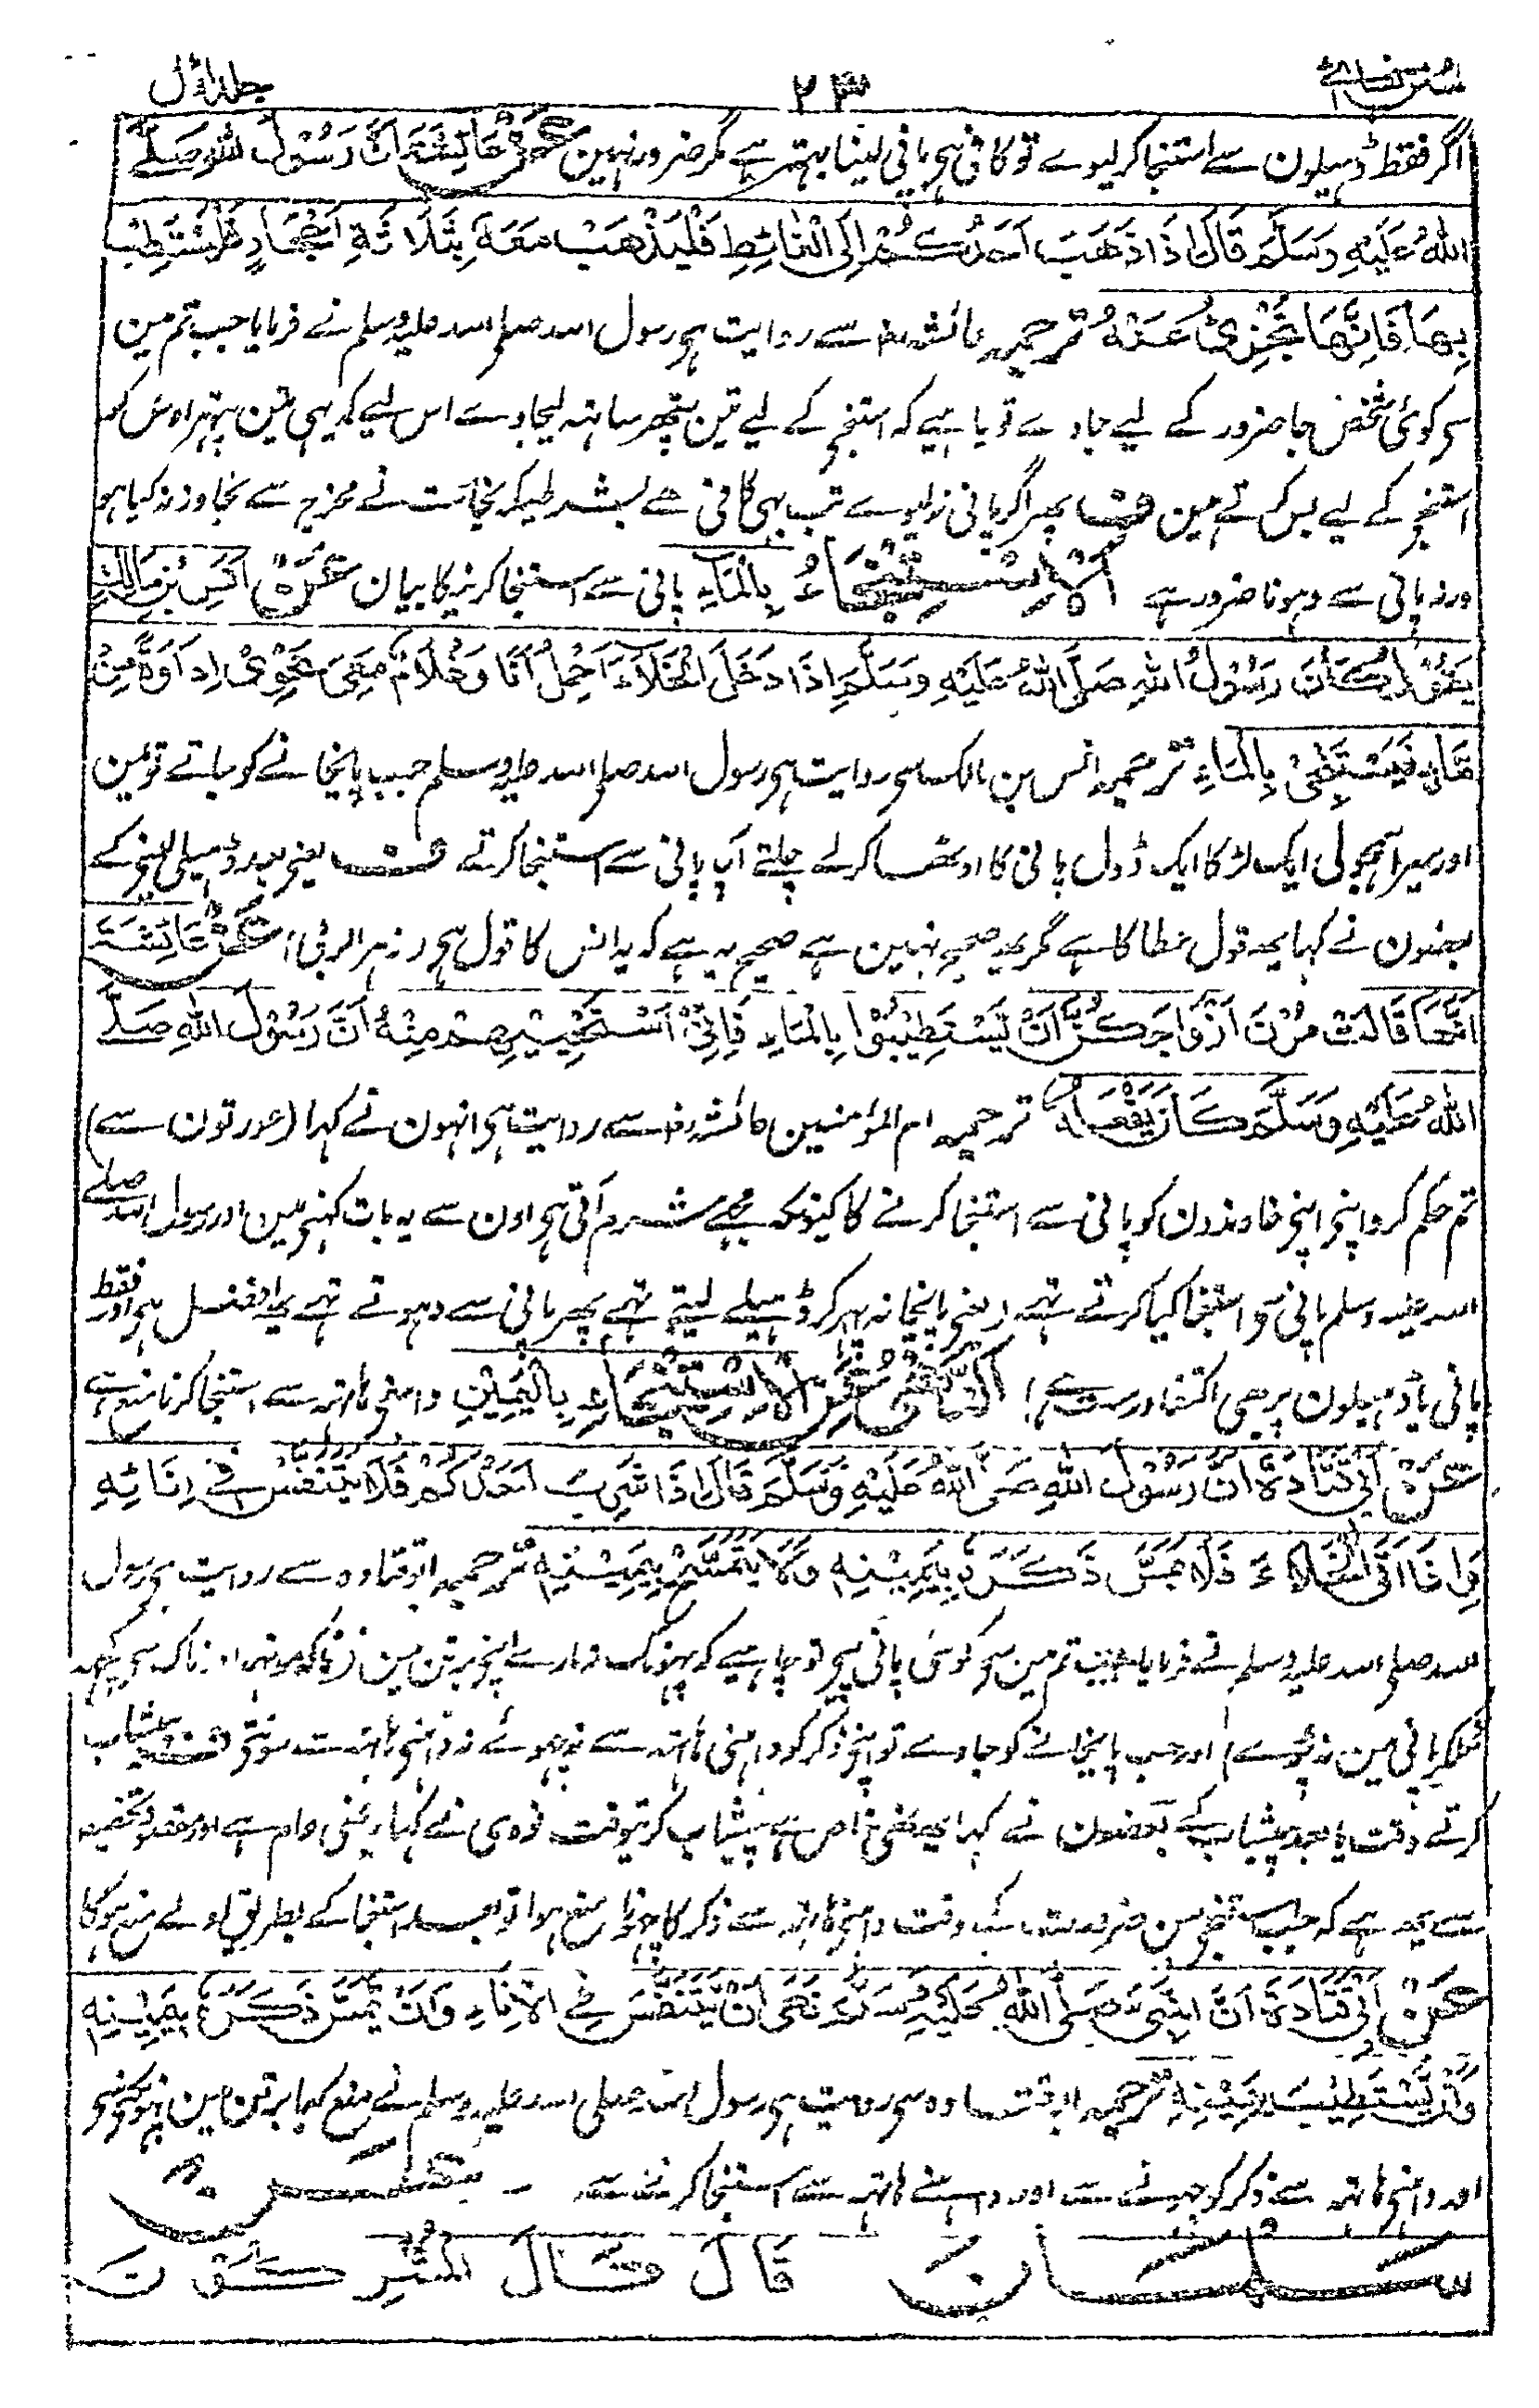 سنن نسائی ۲۳ جلد اول
اگر فقط ڈہیلون سے استنجا کرلیوے تو کافی ہی پانی لینا بہتر ہے مگر ضرور نہین عَنْ عَائِشَةَ اَنَّ رَسُوْلَ اللهِ صَلَّے
اللهُ عَلَيْهِ وَسَلَّمَ قَالَ اِذَا ذَهَبَ اَحَدُكُمْ اِلَى الْغَائِطِ فَلْيَذْهَبْ مَعَهٗ بِثَلَاثَةِ اَحْجَارٍ فَلْيَسْتَطِبْ
بِهَا فَاِنَّهَا تُجْزِئُ عَنْهُ ترجمہ عائشہ رض سے روایت ہی رسول اللہ صلی اللہ علیہ وسلم نے فرمایا جب تم مین
سی کوئی شخص جاضرور کے لیے جاوے تو چاہیے کہ استنجے کے لیے تین پتھر ساتہہ لیجاوے اس لیے کہ یہی تین پتہر اوس کو
استنجے کے لیے بس کرتے ہین ف پھر اگر پانی نہ لیوے تب بہی کافی ہے بشرطیکہ نجاست نے مخرج سے تجاوز نہ کیا ہو
ورنہ پانی سے دہونا ضرور ہے اَلْاِسْتِنْجَاءُ بِالْمَاءِ پانی سے استنجا کرنیکا بیان عَنْ اَنَسِ بْنِ مَالِكٍ
يَقُوْلُ كَانَ رَسُوْلُ اللهِ صَلَّى اللهُ عَلَيْهِ وَسَلَّمَ اِذَا دَخَلَ الْخَلَاءَ اَحْمِلُ اَنَا وَغُلَامٌ مَعِيَ نَحْوِيْ اِدَاوَةً مِنْ
مَّاءٍ فَيَسْتَنْجِيْ بِالْمَاءِ ترجمہ انس بن مالک سی روایت ہی رسول اللہ صلی اللہ علیہ وسلم جب پایخانے کو جاتے تو مین
اور میرا ہمجولی ایک لڑکا ایک ڈول پانی کا اوٹھا کرلے چلتے آپ پانی سے استنجا کرتے ف یعنی بعد ڈہیلی لینی کے
بعضون نے کہا یہ قول عطا کا ہے مگر یہ صحیح نہین ہے صحیح یہ ہے کہ یہ انس کا قول ہی (زہر الربٰی) عَنْ عَائِشَةَ
اَنَّهَا قَالَتْ مُرْنَ اَزْوَاجَكُنَّ اَنْ يَّسْتَطِيْبُوْا بِالْمَاءِ فَاِنِّيْ اَسْتَحْيِيْهِمْ مِنْهُ اَنَّ رَسُوْلَ اللهِ صَلَّے
اللهُ عَلَيْهِ وَسَلَّمَ كَانَ يَفْعَلُهٗ ترجمہ ام المؤمنین عائشہ رض سے روایت ہی انہون نے کہا (عورتون سے)
تم حکم کرو اپنی اپنی خاوندون کو پانی سے استنجا کرنے کا کیونکہ مجہے شرم آتی ہی اون سے یہ بات کہنی مین اور رسول اللہ صلے
اللہ علیہ وسلم پانی سی استنجا کیا کرتے تہے (یعنی پایخانہ پہر کر ڈہیلے لیتے تہے پھر پانی سے دہوتے تہے یہ افضل ہی اور فقط
پانی یا ڈہیلون پر بھی اکتفا درست ہے) اَلنَّهْيُ عَنِ الْاِسْتِنْجَاءِ بِالْيَمِيْنِ داہنی ہاتہہ سے استنجا کرنا منع ہے
عَنْ اَبِيْ قَتَادَةَ اَنَّ رَسُوْلَ اللهِ صَلَّى اللهُ عَلَيْهِ وَسَلَّمَ قَالَ اِذَا شَرِبَ اَحَدُكُمْ فَلَا يَتَنَفَّسْ فِيْ اِنَائِهٖ
وَاِذَا اَتَى الْخَلَاءَ فَلَا يَمَسَّ ذَكَرَهٗ بِيَمِيْنِهٖ وَلَا يَتَمَسَّحْ بِيَمِيْنِهٖ ترجمہ ابو قتادہ سے روایت ہی رسول
اللہ صلی اللہ علیہ وسلم نے فرمایا جب تم مین سی کوئی پانی پیے تو چاہیے کہ پہونک نہ مارے اپنی برتن مین (تاکہ مونہہ اور ناک سی کچہہ
نکلکر پانی مین نہ پڑے) اور جب پایخانے کو جاوے تو اپنی ذکر کو داہنی ہاتہہ سے نہ چھوئے نہ داہنی ہاتہہ سے پونچھے ف پیشاب
کرتے وقت یا بعد پیشاب کے بعضون نے کہا یہ نہی خاص ہے پیشاب کرتیوقت نووی نے کہا نہی عام ہے اور مقصود تخصیص
سے یہ ہے کہ جب استنجی مین ضرورت کے وقت داہنی ہاتہہ سے ذکر کا چھونا منع ہوا تو بعد استنجا کے بطریق اولے منع ہوگا
عَنْ اَبِيْ قَتَادَةَ اَنَّ النَّبِيَّ صَلَّى اللهُ عَلَيْهِ وَسَلَّمَ نَهٰى اَنْ يَّتَنَفَّسَ فِي الْاِنَاءِ وَاَنْ يَّمَسَّ ذَكَرَهٗ بِيَمِيْنِهٖ
وَاَنْ يَّسْتَطِيْبَ بِيَمِيْنِهٖ ترجمہ ابو قتادہ سی روایت ہی رسول اللہ صلی اللہ علیہ وسلم نے منع کیا برتن مین پہونکنے سی
اور داہنی ہاتہہ سے ذکر کو چہونے سے اور داہنے ہاتہہ سے استنجا کرنے سے ۔ عَنْ
سَلْمَانَ قَالَ قَالَ الْمُشْرِكُوْنَ